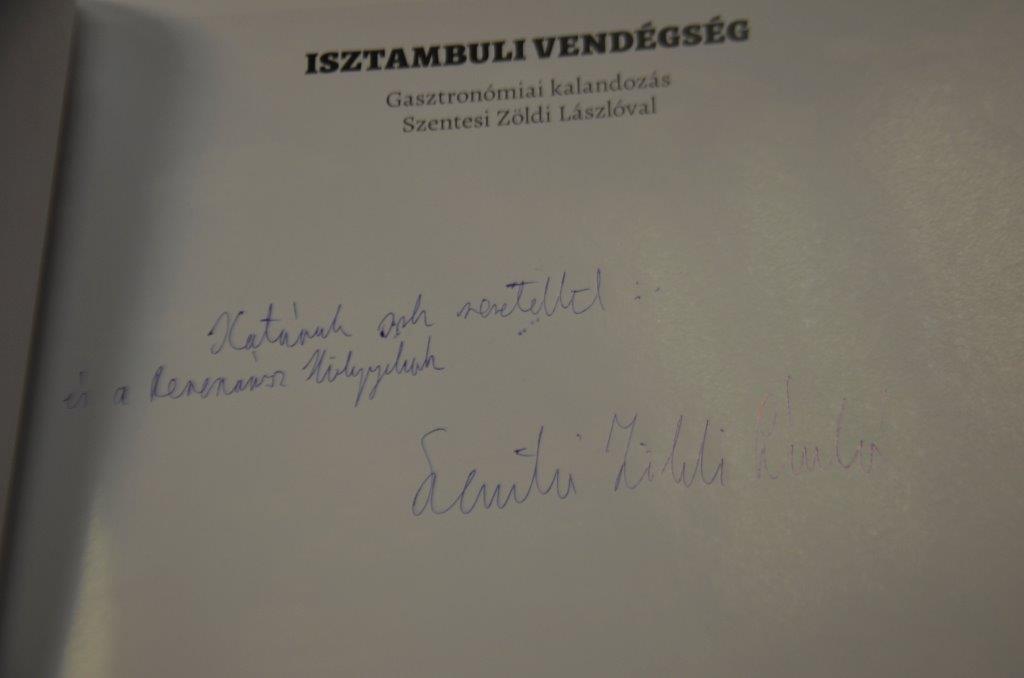 ISZTAMBULI VENDÉGSÉG
Gasztronómiai kalandozás
Szentesi Zöldi Lászlóval
Katának sok szeretettel :
és a Hölgyeknek
Szentesi Zöldi László